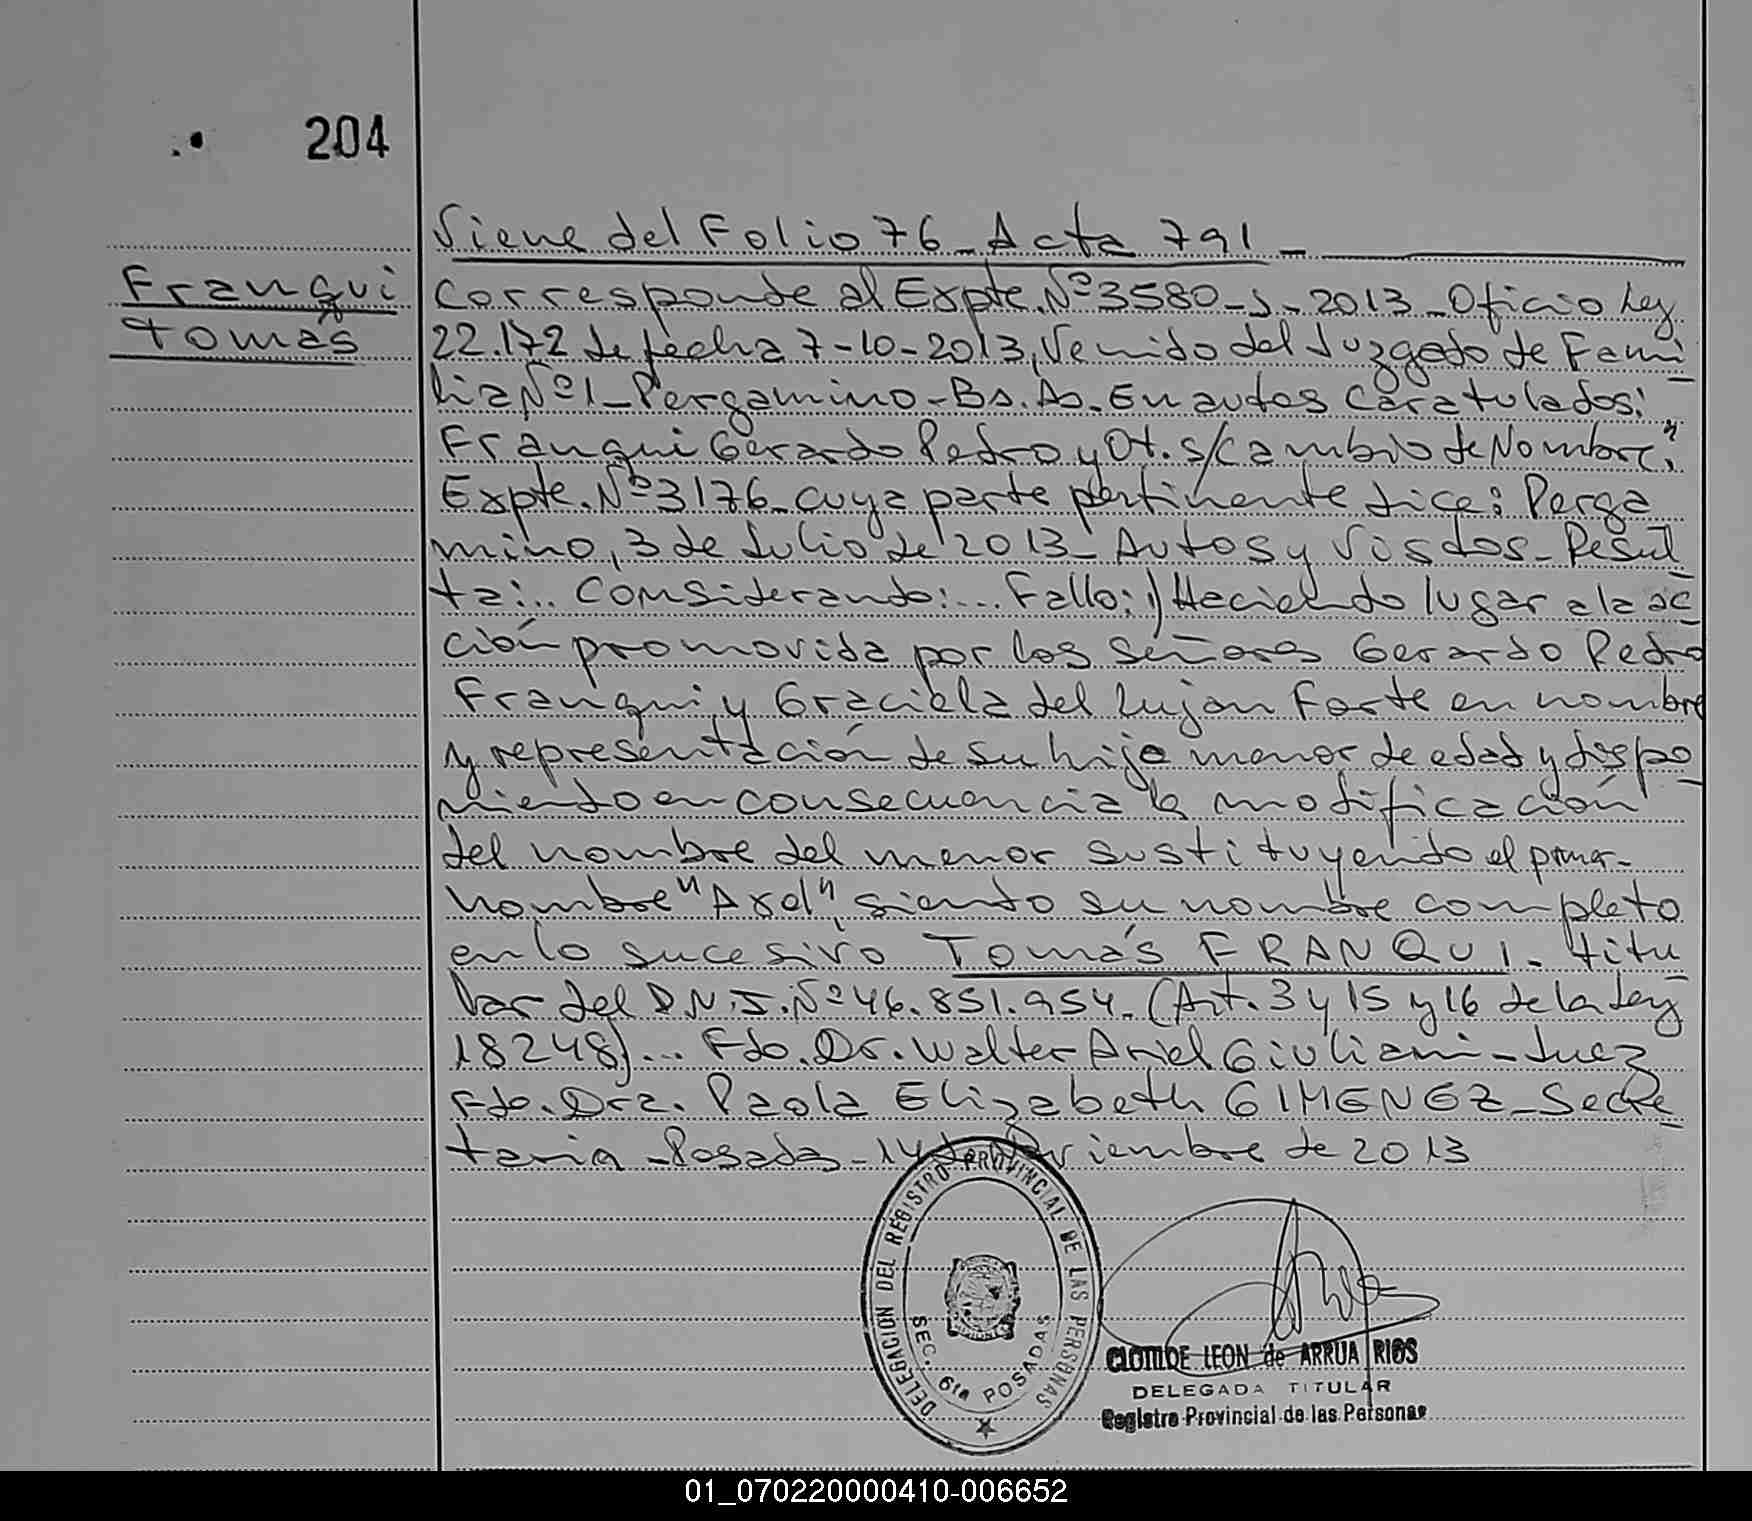 204
Viene del Folio 76 - Acta 791 -
Franqui
Tomás
Corresponde al Expte. Nº 3580 - J - 2013 - Oficio Ley
22.172 de fecha 7-10-2013, Venido del Juzgado de Fami
lia Nº 1 - Pergamino - Bs. As. En autos Caratulados:
Franqui Gerardo Pedro y Ot. s/Cambio de Nombre",
Expte. Nº 3176 - cuya parte pertinente dice: Perga
mino, 3 de Julio de 2013 - Autos y Vistos - Resul
ta:.. Considerando:... Fallo: 1) Haciendo lugar a la ac
ción promovida por los señores Gerardo Pedro
Franqui y Graciela del Lujan Forte en nombre
y representación de su hijo menor de edad y dispo
niendo en consecuencia la modificación
del nombre del menor sustituyendo el primer-
nombre "Axel", siendo su nombre completo
en lo sucesivo Tomás FRANQUI - titu
lar del D.N.I. Nº 46.851.954. (Art. 3 y 15 y 16 de la Ley
18248)... Fdo. Dr. Walter Ariel Giuliani - Juez
Fdo. Dra. Paola Elizabeth GIMENEZ - Secre
taria - Posadas - 14 de Noviembre de 2013
DELEGACION DEL REGISTRO PROVINCIAL DE LAS PERSONAS
SEC. 6ta POSADAS
CLOTILDE LEON de ARRUA RIOS
DELEGADA TITULAR
Registro Provincial de las Personas
01_070220000410-006652